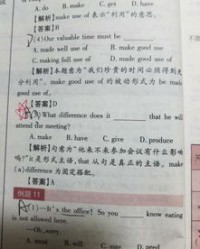 A. do B. make C. get D. have
【解析】make use of 表示“利用”的意思。
【答案】B
(4)Our valuable time must be
A. made well use of B. make good use
C. making full use of D. made good use of
【解析】本题意为“我们珍贵的时间必须得到充
分利用”。make good use of 的被动形式为 be made
good use of。
【答案】D
What difference does it ______ that he will
attend the meeting?
A. make B. have C. give D. produce
【解析】句意为“他来不来参加会议有什么影响
呢?”it 是形式主语, that 从句是真正的主语。make
difference 为固定搭配。
【答案】A
例题 11
(1)—It's the office! So you ______ know eating
is not allowed here.
—Oh, sorry.
A. must B. will C. may D. need